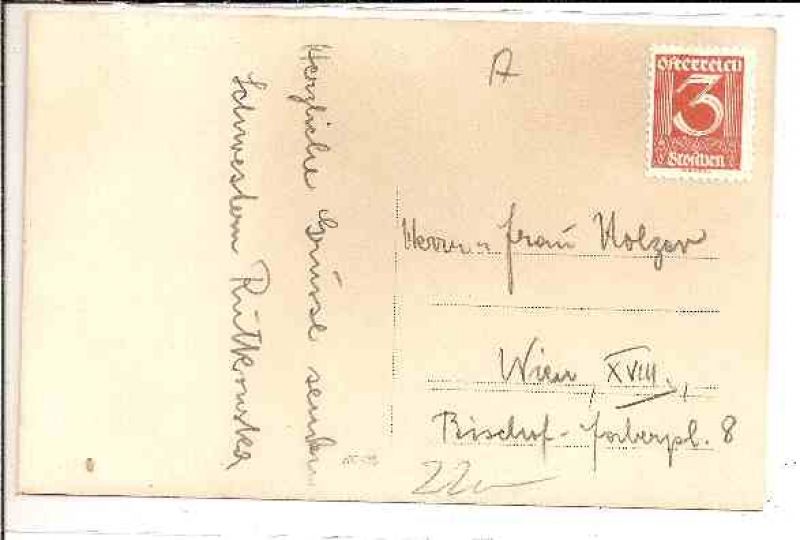 A
Österreich
3
Groschen
Herzliche Grüsse senden
Schwestern Rutkowska
Herrn u Frau Holzer
Wien, XVIII.,
Bischof-Faberpl. 8